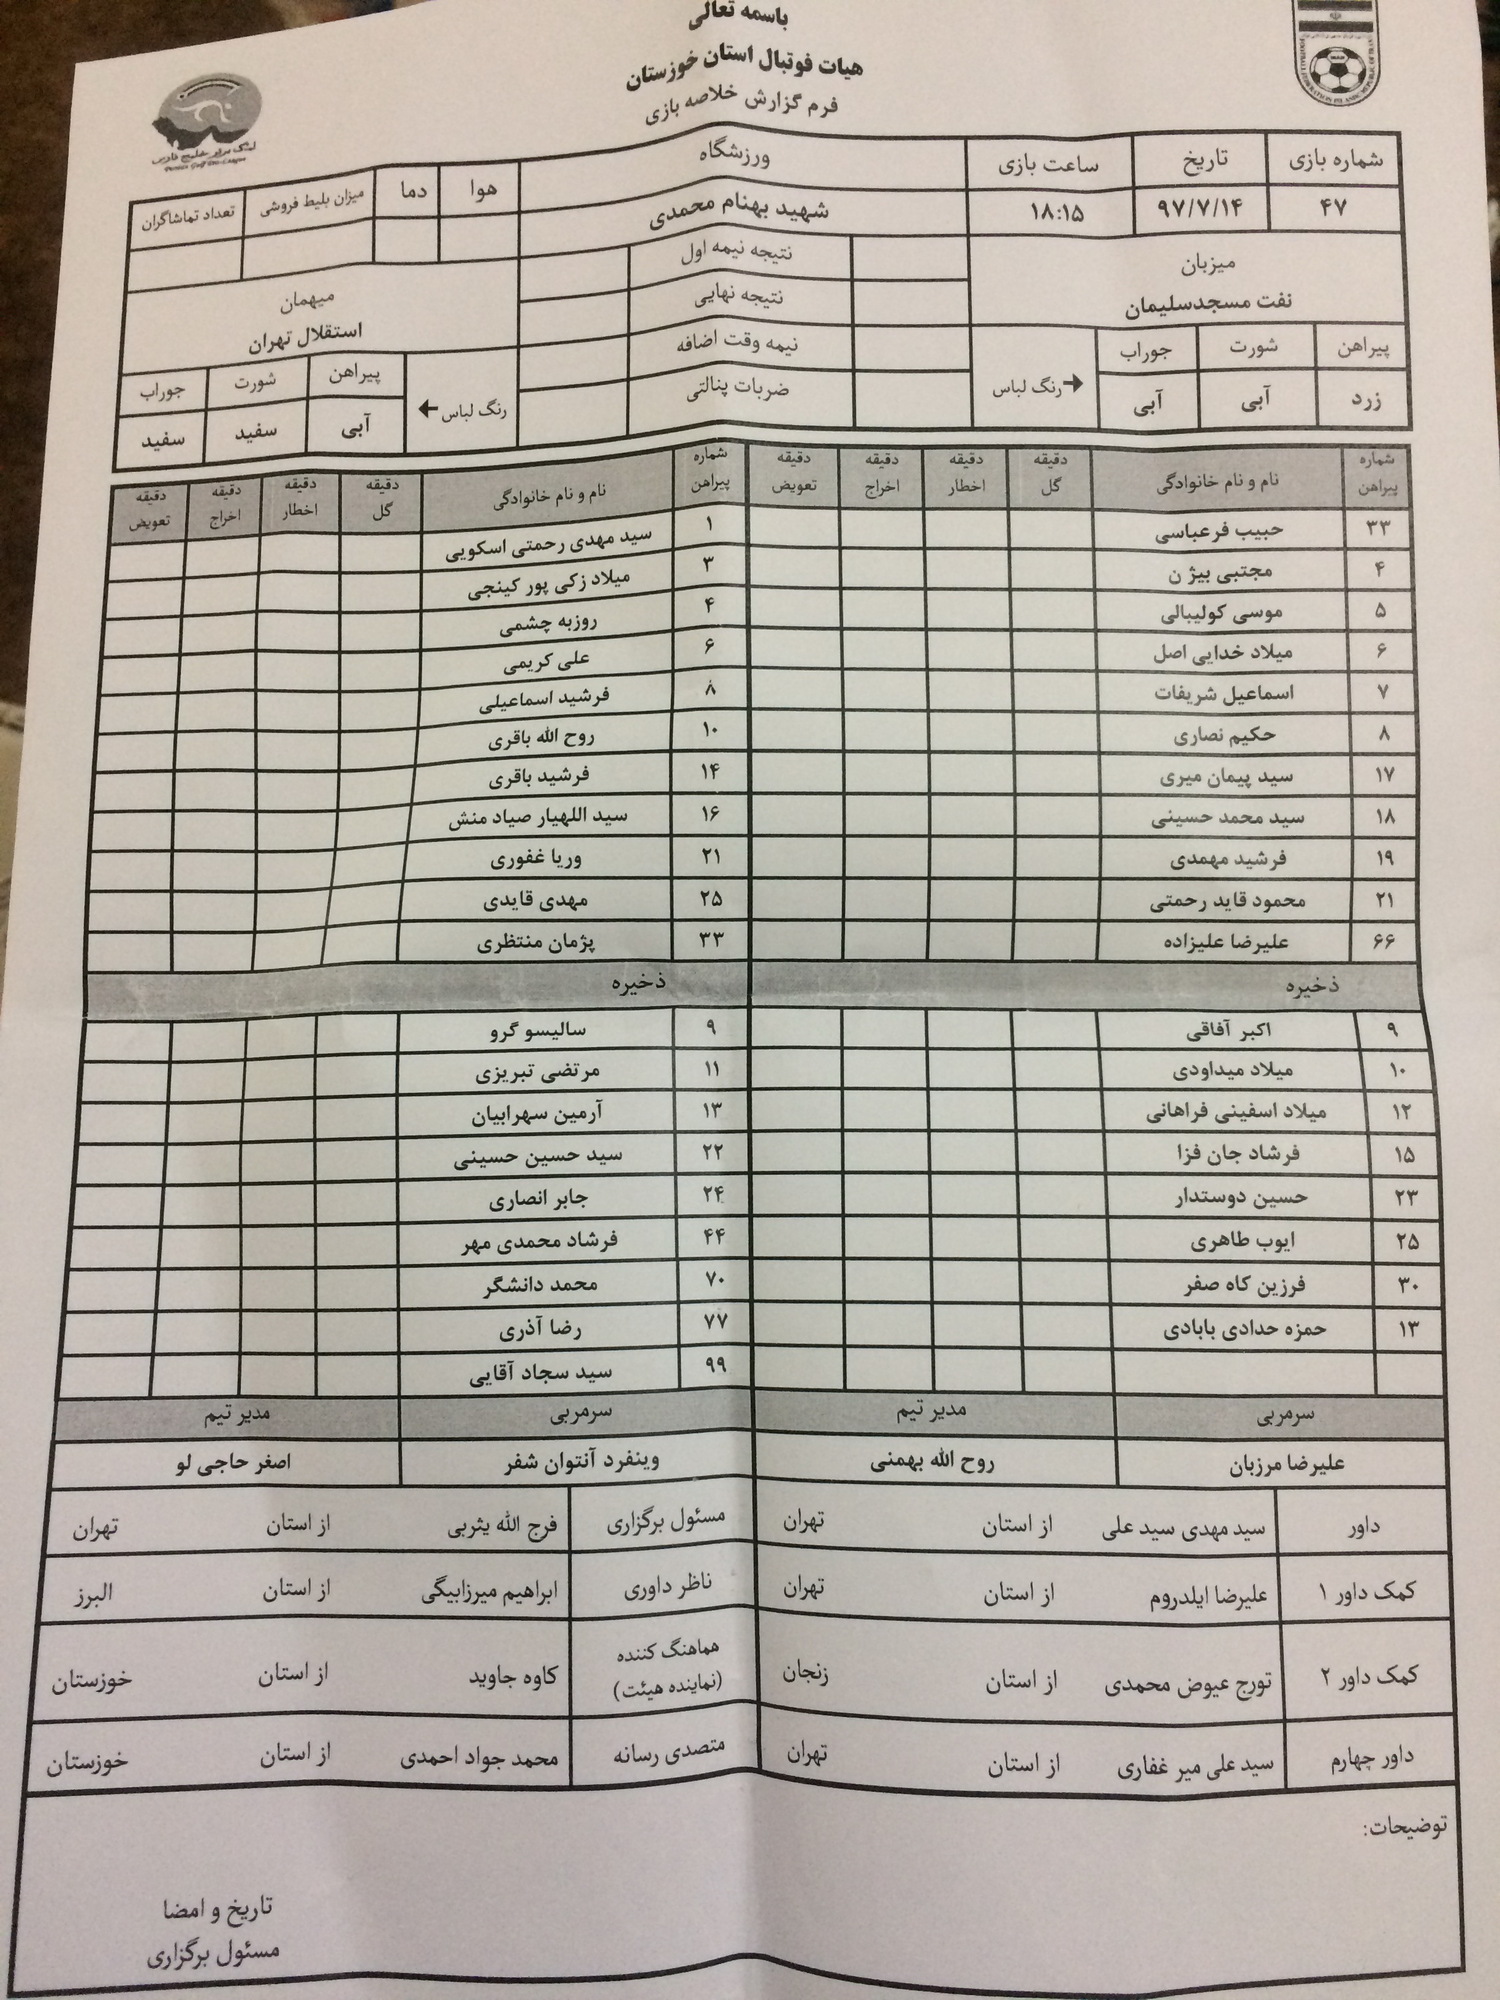 باسمه تعالی
هیات فوتبال استان خوزستان
فرم گزارش خلاصه بازی
شماره بازی تاریخ ساعت بازی ورزشگاه هوا دما میزان بلیط فروشی تعداد تماشاگران
۴۷ ۹۷/۷/۱۴ ۱۸:۱۵ شهید بهنام محمدی
میزبان نتیجه نیمه اول میهمان
نفت مسجدسلیمان نتیجه نهایی استقلال تهران
پیراهن شورت جوراب رنگ لباس نیمه وقت اضافه رنگ لباس پیراهن شورت جوراب
زرد آبی آبی ضربات پنالتی آبی سفید سفید
شماره پیراهن نام و نام خانوادگی دقیقه گل دقیقه اخطار دقیقه اخراج دقیقه تعویض شماره پیراهن نام و نام خانوادگی دقیقه گل دقیقه اخطار دقیقه اخراج دقیقه تعویض
۳۳ حبیب فرعباسی ۱ سید مهدی رحمتی اسکویی
۴ مجتبی بیژ ن ۳ میلاد زکی پور کینجی
۵ موسی کولیبالی ۴ روزبه چشمی
۶ میلاد خدایی اصل ۶ علی کریمی
۷ اسماعیل شریفات ۸ فرشید اسماعیلی
۸ حکیم نصاری ۱۰ روح الله باقری
۱۷ سید پیمان میری ۱۴ فرشید باقری
۱۸ سید محمد حسینی ۱۶ سید اللهیار صیاد منش
۱۹ فرشید مهمدی ۲۱ وریا غفوری
۲۱ محمود قاید رحمتی ۲۵ مهدی قایدی
۶۶ علیرضا علیزاده ۳۳ پژمان منتظری
ذخیره ذخیره
۹ اکبر آفاقی ۹ سالیسو گرو
۱۰ میلاد میداودی ۱۱ مرتضی تبریزی
۱۲ میلاد اسفینی فراهانی ۱۳ آرمین سهرابیان
۱۵ فرشاد جان فزا ۲۲ سید حسین حسینی
۲۳ حسین دوستدار ۲۴ جابر انصاری
۲۵ ایوب طاهری ۴۴ فرشاد محمدی مهر
۳۰ فرزین کاه صفر ۷۰ محمد دانشگر
۱۳ حمزه حدادی بابادی ۷۷ رضا آذری
۹۹ سید سجاد آقایی
سرمربی مدیر تیم سرمربی مدیر تیم
علیرضا مرزبان روح الله بهمنی وینفرد آنتوان شفر اصغر حاجی لو
داور سید مهدی سید علی از استان تهران مسئول برگزاری فرج الله یثربی از استان تهران
کمک داور ۱ علیرضا ایلدروم از استان تهران ناظر داوری ابراهیم میرزابیگی از استان البرز
کمک داور ۲ تورج عیوض محمدی از استان زنجان هماهنگ کننده (نماینده هیئت) کاوه جاوید از استان خوزستان
داور چهارم سید علی میر غفاری از استان تهران متصدی رسانه محمد جواد احمدی از استان خوزستان
توضیحات:
تاریخ و امضا
مسئول برگزاری